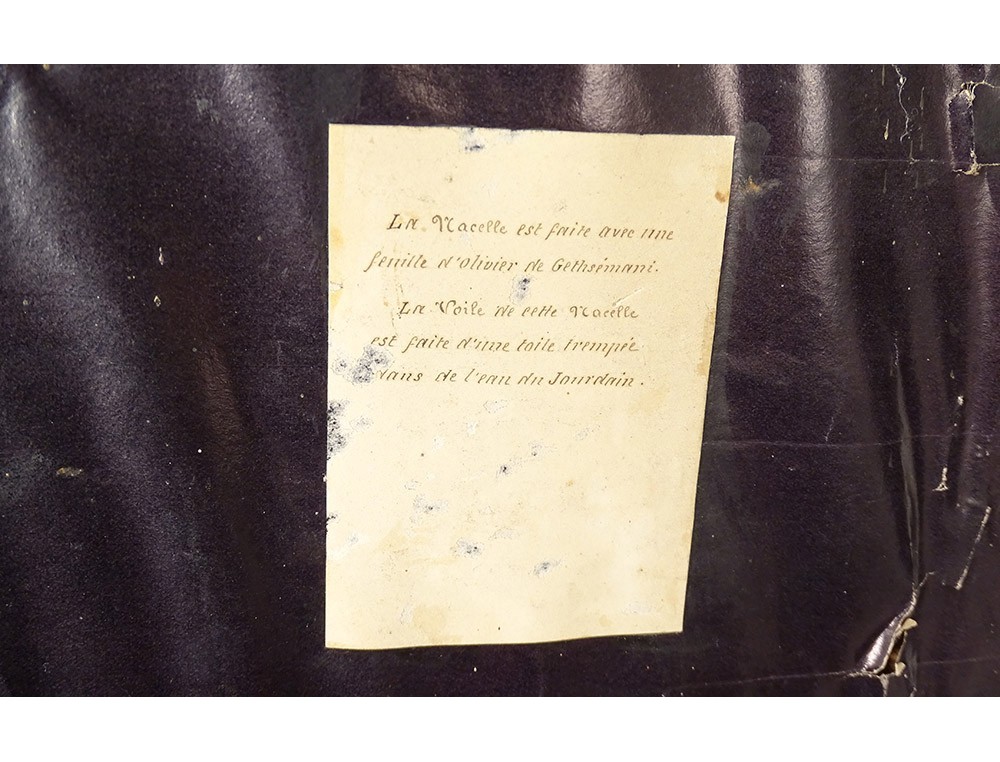 La Nacelle est faite avec une
feuille d'Olivier de Gethsémani.
La Voile de cette Nacelle
est faite d'une toile trempée
dans de l'eau du Jourdain.